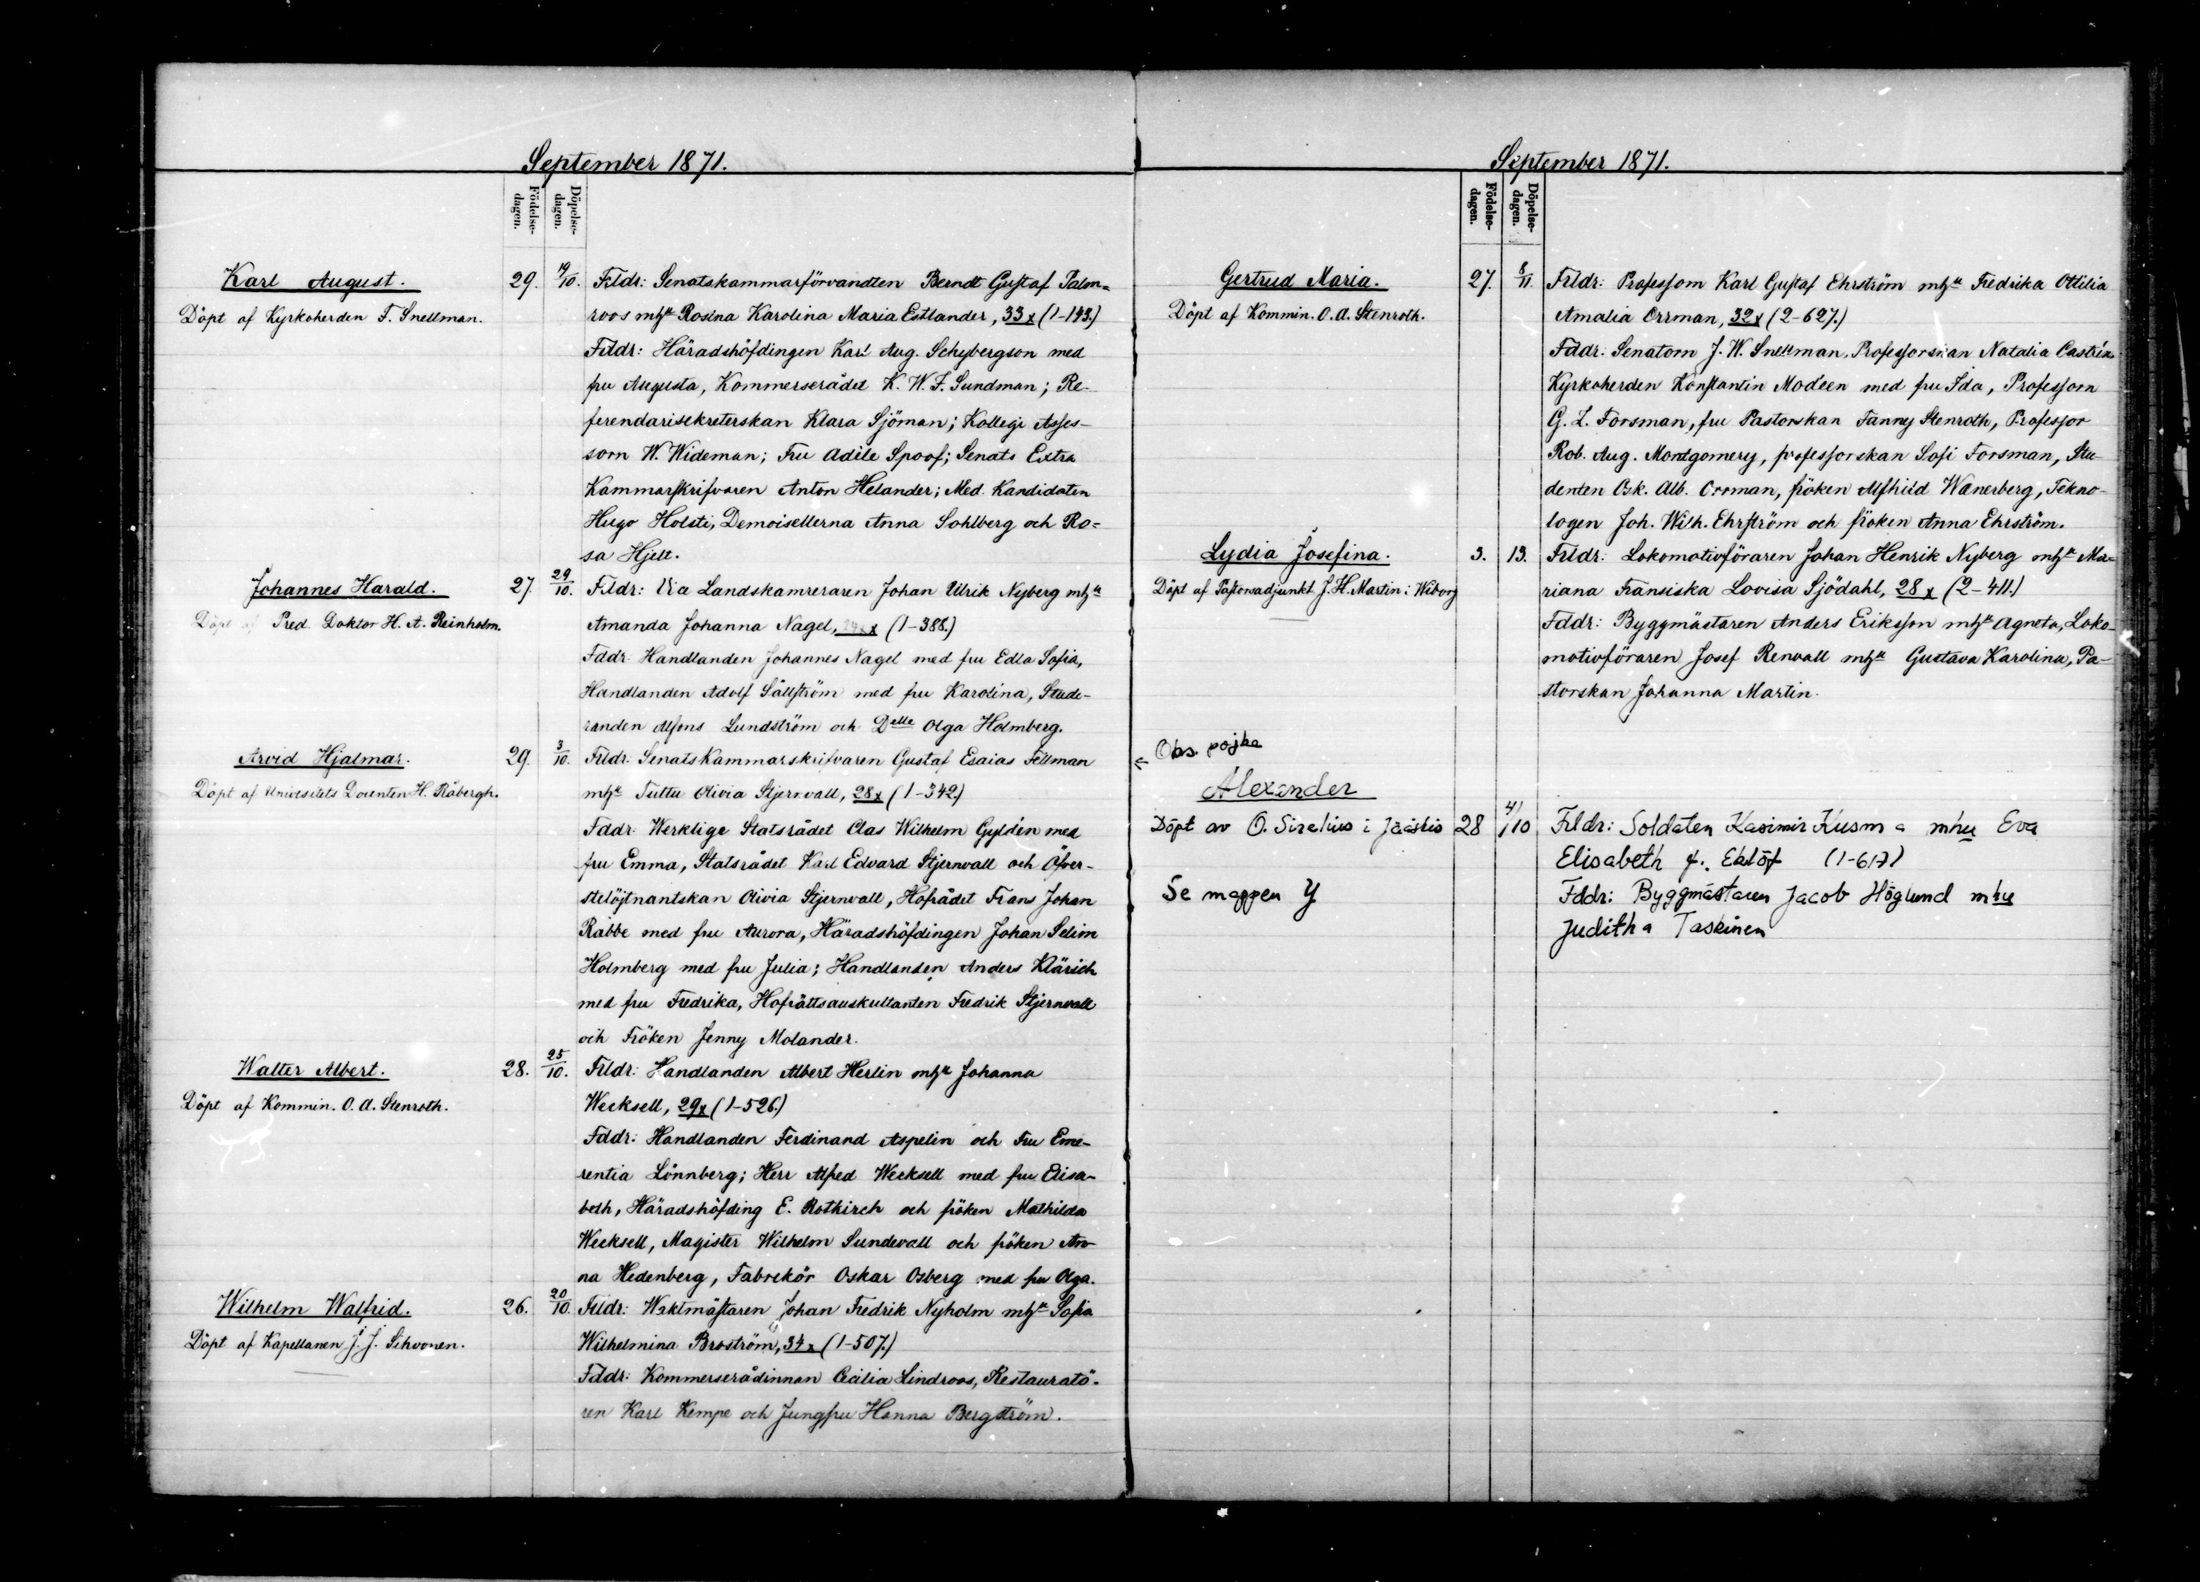 September 1871.
Födelse-
dagen.
Döpelse-
dagen.
Karl August.
Döpt af Kyrkoherden F. Snellman.
29. 19/10.
Frldr: Senatskammarförvandten Berndt Gustaf Palm=
roos mhu Rosina Karolina Maria Estlander, 33x (1-143.)
Fddr: Häradshöfdingen Karl Aug. Schybergson med
fru Augusta, Kommerserådet K. W. F. Sundman; Re-
ferendariesekreterskan Klara Sjöman; Kollegi Asses-
sorn W. Wideman; Fru Adile Spoof; Senats Extra
Kammarskrifvaren Anton Helander; Med. Kandidaten
Hugo Holsti, Demoisellerna Anna Sohlberg och Ro=
sa Hjelt.
Johannes Harald.
Döpt af Pred. Doktor H. A. Reinholm.
27. 29/10.
Frldr: Landskamreraren Johan Ulrik Nyberg mhu
Amanda Johanna Nagel, (1-388.)
Fddr: Handlanden Johannes Nagel med fru Edla Sofia,
Handlanden Adolf Sållström med fru Karolina, Stude-
randen Alfons Lundström och Delle Olga Holmberg.
Arvid Hjalmar.
Döpt af Universitets Docenten H. Råbergh.
29. 3/10.
Frldr: Senats Kammarskrifvaren Gustaf Esaias Fellman
mhu Tuttu Olivia Stjernvall, 28x (1-342)
Fddr: Werklige Statsrådet Clas Wilhelm Gyldén med
fru Emma, Statsrådet Karl Edvard Stjernvall och Öfver-
stelöjtnantskan Olivia Stjernvall, Hofrådet Frans Johan
Rabbe med fru Aurora, Häradshöfdingen Johan Selim
Holmberg med fru Julia; Handlanden Anders Klärich
med fru Fredrika, Hofrättsauskultanten Fredrik Stjernvall
och Fröken Jenny Molander.
Walter Albert.
Döpt af Kommin. O. A. Stenroth.
28. 25/10.
Frldr: Handlanden Albert Herlin mhu Johanna
Wecksell, 29x (1-526.)
Fddr: Handlanden Ferdinand Aspelin och Fru Eme-
rentia Lönnberg; Herr Alfred Wecksell med fru Elisa-
beth, Häradshöfding E. Rotkirch och fröken Mathilda
Wecksell, Magister Wilhelm Sundevall och fröken An-
na Hedenberg, Fabrikör Oskar Osberg med fru Olga.
Wilhelm Walfrid.
Döpt af Kapellanen J. J. Sihvonen.
26. 20/10.
Frldr: Waktmästaren Johan Fredrik Nyholm mhu Sofia
Wilhelmina Broström, 34x (1-507.)
Fddr: Kommerserådinnan Cecilia Lindroos, Restauratö-
ren Karl Kempe och Jungfru Hanna Bergström.
September 1871.
Födelse-
dagen.
Döpelse-
dagen.
Gertrud Maria.
Döpt af Kommin. O. A. Stenroth.
27. 8/11.
Frldr: Professorn Karl Gustaf Ehrström mhu Fredrika Ottilia
Amalia Orrman, 32x (2-627.)
Fddr: Senatorn J. W. Snellman, Professorskan Natalia Castrén,
Kyrkoherden Konstantin Modeen med fru Ida, Professorn
G. Z. Forsman, fru Pastorskan Fanny Stenroth, Professor
Rob. Aug. Montgomery, professorskan Sofi Forsman, Stu-
denten Osk. Alb. Orrman, fröken Alfhild Wanerberg, Tekno-
logen Joh. Wilh. Ehrström och fröken Anna Ehrström.
Lydia Josefina.
Döpt af Pastorsadjunkt J. H. Martin i Wiborg
3. 13.
Frldr: Lokomotivföraren Johan Henrik Nyberg mhu Ma-
riana Fransiska Lovisa Sjödahl, 28x (2-411.)
Fddr: Byggmästaren Anders Eriksson mhu Agneta, Loko-
motivföraren Josef Renvall mhu Gustava Karolina, Pa-
storskan Johanna Martin.
← Obs. pojke
Alexander
Döpt av O. Sirelius i Jääskis
28 4/10
Frldr: Soldaten Kasimir Kusma mhu Eva
Elisabeth f. Eklöf (1-617)
Fddr: Byggmästaren Jacob Höglund mhu
Juditha Taskinen
Se mappen Y